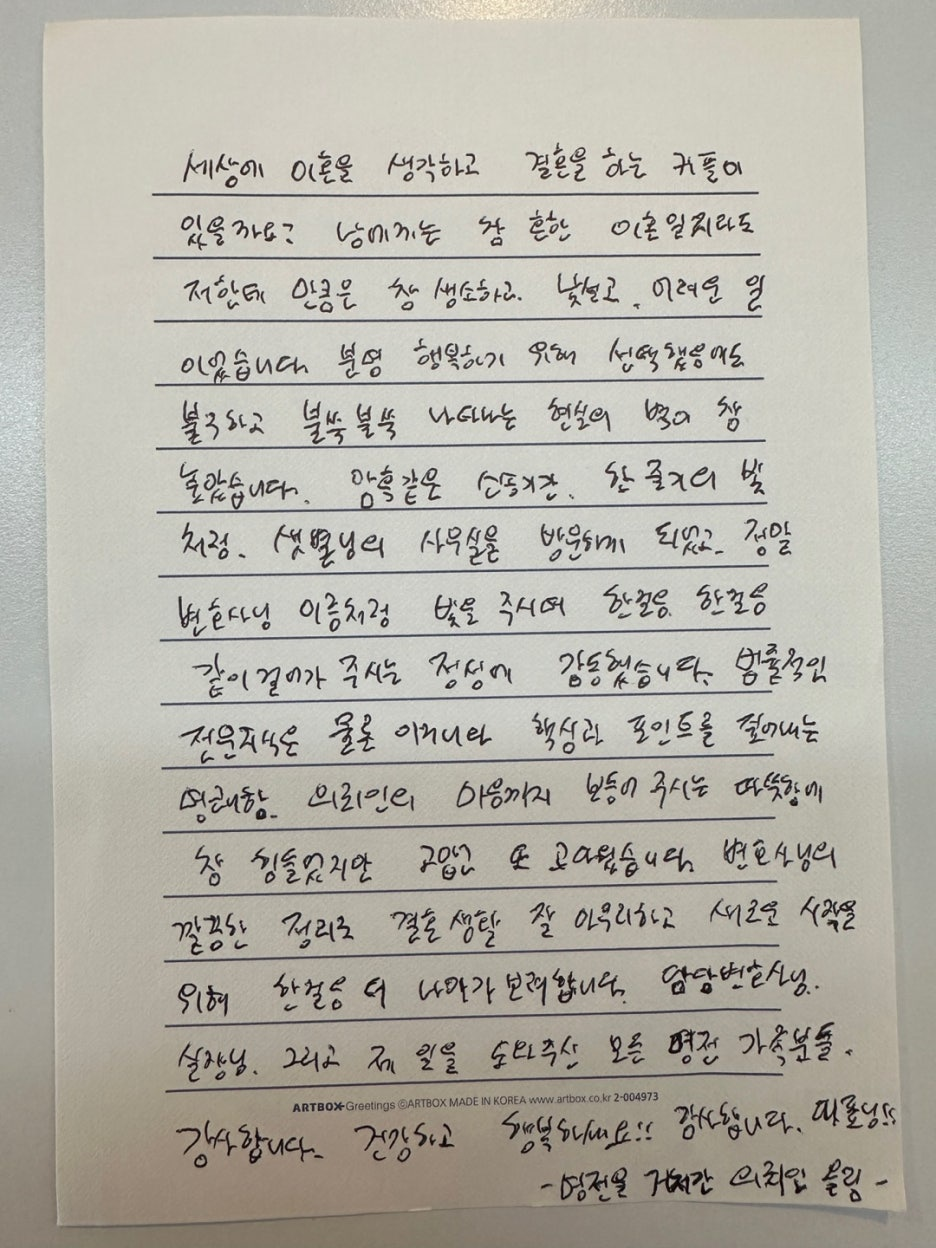 세상에 이혼을 생각하고 결혼을 하는 커플이
있을까요? 남에게는 참 흔한 이혼일지라도
저한테 만큼은 참 생소하고, 낯설고, 어려운 일
이었습니다. 분명 행복하기 위해 선택했음에도
불구하고 불쑥불쑥 나타나는 현실의 벽이 참
높았습니다. 암흑같은 소송기간, 한 줄기의 빛
처럼, 샛별님의 사무실을 방문하게 되었고, 정말
변호사님 이름처럼 빛을 주시며 한걸음, 한걸음
같이 걸어가 주시는 정성에 감동했습니다. 법률적인
전문지식은 물론 이거니와 핵심과 포인트를 짚어내는
명쾌함, 의뢰인의 마음까지 보듬어 주시는 따뜻함에
참 힘들었지만 고맙고 또 고마웠습니다. 변호사님의
깔끔한 정리로 결혼생활 잘 마무리하고 새로운 시작을
위해 한걸음 더 나아가 보려합니다. 담당변호사님,
실장님, 그리고 제 일을 도와주신 모든 명전 가족분들,
ARTBOX Greetings ⓒARTBOX MADE IN KOREA www.artbox.co.kr 2-004973
감사합니다. 건강하고 행복하세요!! 감사합니다.
- 명전을 거쳐간 의뢰인 올림 -